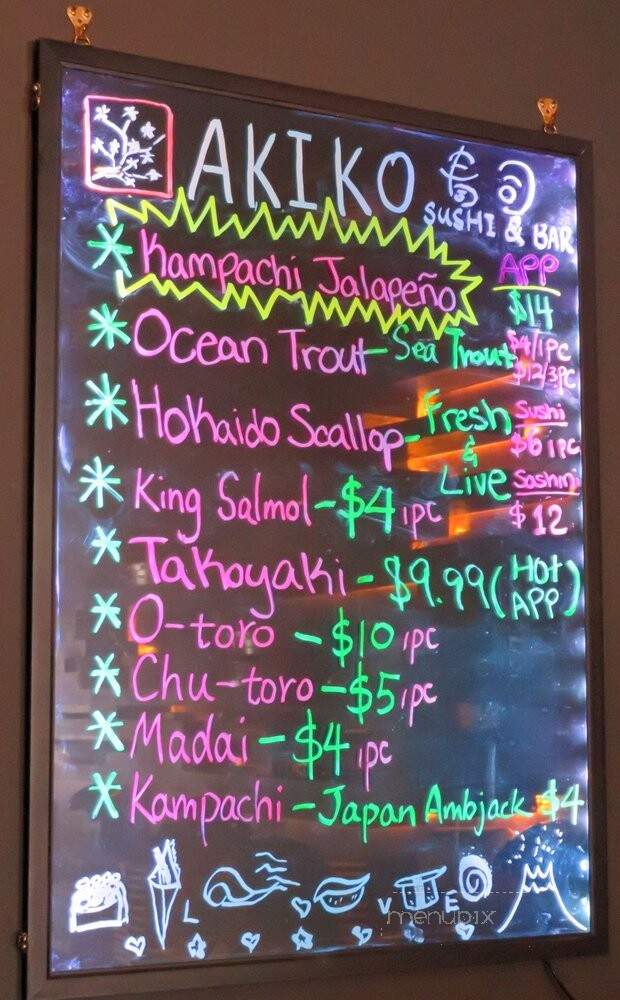 AKIKO
SUSHI & BAR
* Kampachi Jalapeño APP $14
* Ocean Trout - Sea Trout $4/1pc $12/3pc
* Hokaido Scallop - Fresh & Live Sushi $6 1pc Sashimi $12
* King Salmol - $4 1pc
* Takoyaki - $9.99 (Hot APP)
* O-toro - $10 1pc
* Chu-toro - $5 1pc
* Madai - $4 1pc
* Kampachi - Japan Ambjack $4
L V E
menubix